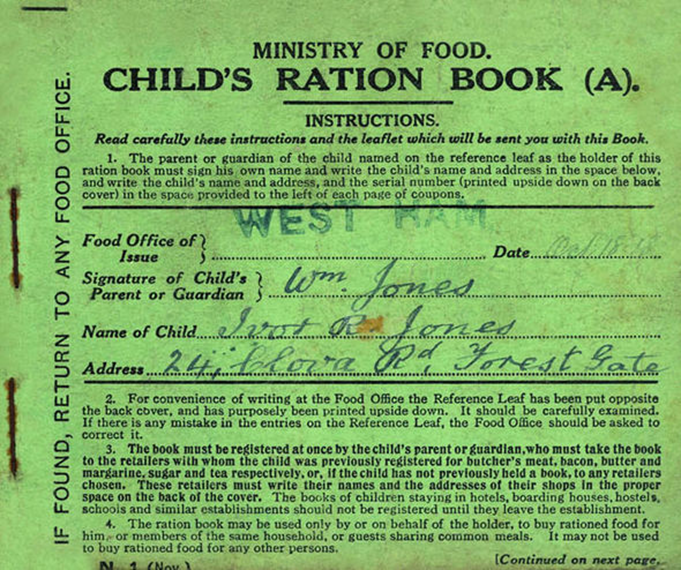 MINISTRY OF FOOD.
CHILD'S RATION BOOK (A).
INSTRUCTIONS.
Read carefully these instructions and the leaflet which will be sent you with this Book.
1. The parent or guardian of the child named on the reference leaf as the holder of this
ration book must sign his own name and write the child's name and address in the space below,
and write the child's name and address, and the serial number (printed upside down on the back
cover) in the space provided to the left of each page of coupons.
WEST HAM
Food Office of Issue } Date
Signature of Child's Parent or Guardian } Wm. Jones
Name of Child Ivor R Jones
Address 24, Clova Rd, Forest Gate
2. For convenience of writing at the Food Office the Reference Leaf has been put opposite
the back cover, and has purposely been printed upside down. It should be carefully examined.
If there is any mistake in the entries on the Reference Leaf, the Food Office should be asked to
correct it.
3. The book must be registered at once by the child's parent or guardian, who must take the book
to the retailers with whom the child was previously registered for butcher's meat, bacon, butter and
margarine, sugar and tea respectively, or, if the child has not previously held a book, to any retailers
chosen. These retailers must write their names and the addresses of their shops in the proper
space on the back of the cover. The books of children staying in hotels, boarding houses, hostels,
schools and similar establishments should not be registered until they leave the establishment.
4. The ration book may be used only by or on behalf of the holder, to buy rationed food for
him, or members of the same household, or guests sharing common meals. It may not be used
to buy rationed food for any other persons.
N. 1 (Nov.)
[Continued on next page.
IF FOUND, RETURN TO ANY FOOD OFFICE.